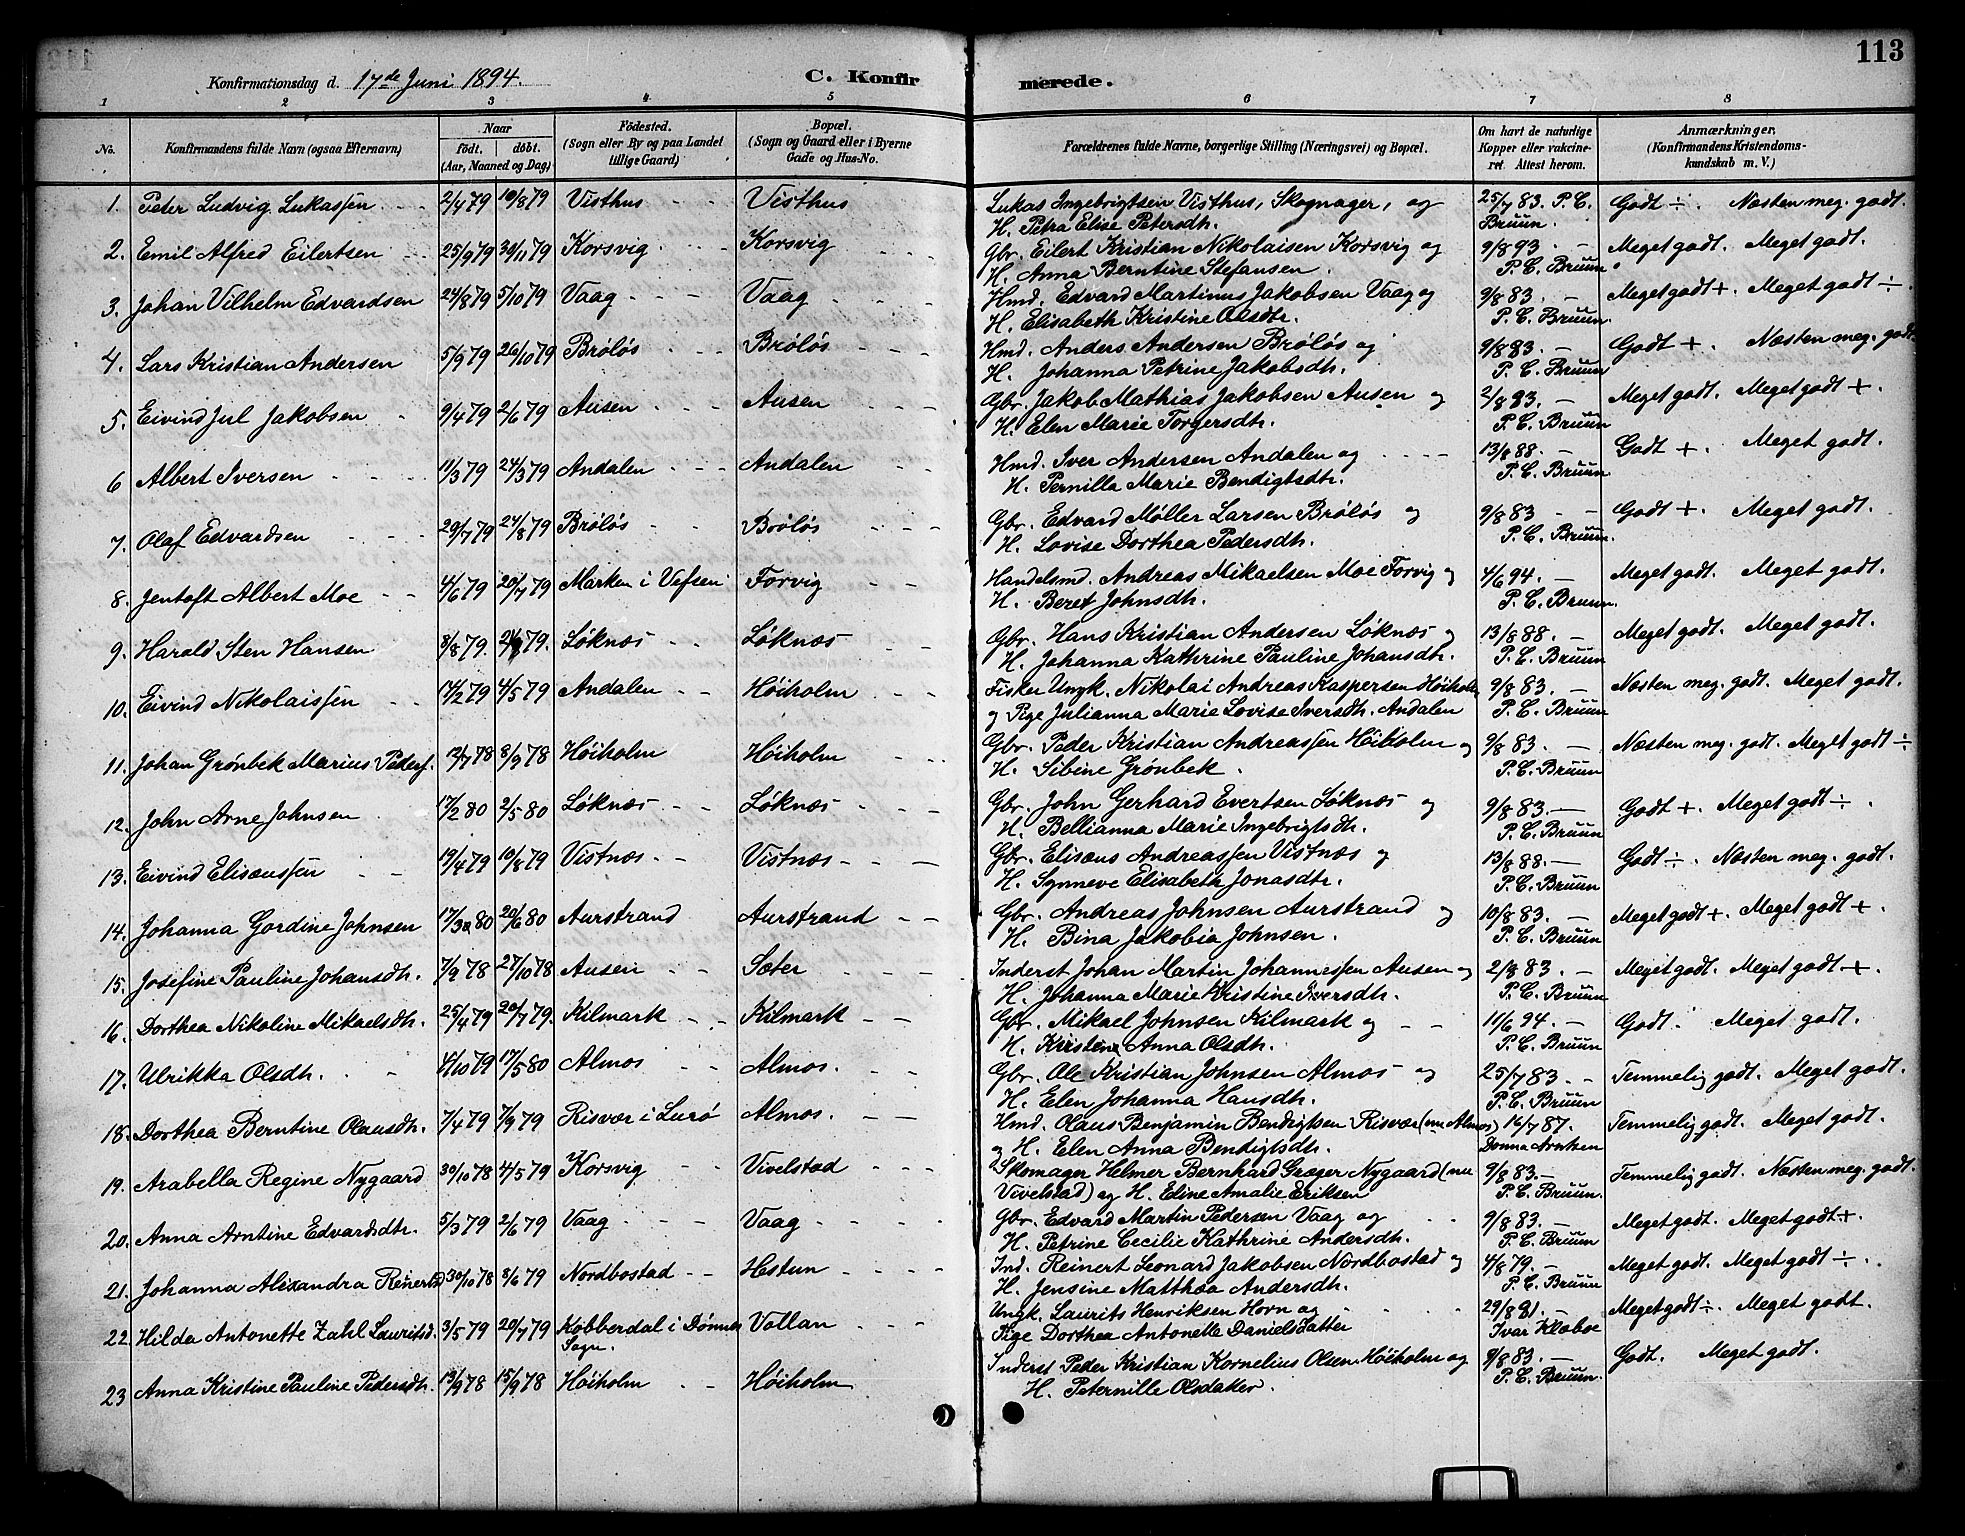 113
Konfirmationsdag d. 17de Juni 1894. C. Konfirmerede.
1 2 3 4 5 6 7 8
No. Konfirmandens fulde Navn (ogsaa Efternavn) Naar født, døbt. (Aar, Maaned og Dag) Fødested. (Sogn eller By og paa Landet tillige Gaard) Bopæl. (Sogn og Gaard eller i Byerne Gade og Hus-No. Forældrenes fulde Navne, borgerlige Stilling (Næringsvei) og Bopæl. Om havt de naturlige Kopper eller vakcineret. Attest herom. Anmærkninger. (Konfirmandens Kristendomskundskab m. V.)
1. Peter Ludvig Lukassen 2/4 79 10/8 79 Visthus Visthus Lukas Ingebrigtsen Visthus, Skognager, og 25/7 83. P. C. Godt ÷. Næsten meg. godt.
H. Petra Elise Petersdh. Bruun.
2. Emil Alfred Eilertsen 25/9 79 30/11 79 Korsvig Korsvig Gbr. Eilert Kristian Nikolaisen Korsvig og 9/8 93. — Meget godt. Meget godt.
H. Anna Berntine Stefansen. P. C. Bruun.
3. Johan Vilhelm Edvardsen 24/8 79 5/10 79 Vaag Vaag Hmd. Edvard Martinus Jakobsen Vaag og 9/8 83. — Meget godt +. Meget godt ÷.
H. Elisabeth Kristine Olsdtr. P. C. Bruun.
4. Lars Kristian Andersen 5/9 79 26/10 79 Brøløs Brøløs Hmd. Anders Andersen Brøløs og 9/8 83. — Godt +. Næsten meg. godt.
H. Johanna Petrine Jakobsdh. P. C. Bruun
5. Eivind Jul Jakobsen 9/4 79 2/6 79 Ausen Ausen Gbr. Jakob Mathias Jakobsen Ausen og 2/8 83. — Meget godt. Meget godt +.
H. Elen Marie Torgersdh. P. C. Bruun
6 Albert Iversen 11/3 79 24/3 79 Andalen Andalen Hmd. Iver Andersen Andalen og 13/8 88. — Godt +. Meget godt.
H. Pernilla Marie Bendigtsdh. P. C. Bruun
7. Olaf Edvardsen 29/7 79 24/8 79 Brøløs Brøløs Gbr. Edvard Møller Larsen Brøløs og 9/8 83 — Godt +. Meget godt.
H. Lovise Dorthea Pedersdh. P. C. Bruun.
8. Jentoft Albert Moe 4/6 79 20/7 79 Marken i Vefsen Forvig Handelsmd. Andreas Mikaelsen Moe Forvig og 4/6 94. — Meget godt. Meget godt.
H. Beret Johnsdh. P. C. Bruun.
9. Harald Sten Hansen 8/8 79. 79. Løknæs Løknæs Gbr. Hans Kristian Andersen Løknæs og 13/8 88. — Meget godt. Meget godt.
H. Johanna Kathrine Pauline Johansdh. P. C. Bruun
10. Eivind Nikolaissen 14/2 79 4/5 79 Andalen Høiholm Fisker Ungk. Nikolai Andreas Kaspersen Høiholm 9/8 83. — Næsten meg. godt. Meget godt.
og Pige Julianna Marie Lovise Iversdh. Andalen P. C. Bruun
11. Johan Grønbek Marius Peders. 12/7 78 8/9 78 Høiholm Høiholm Gbr. Peder Kristian Andreassen Høiholm og 9/8 83. — Næsten meg. godt. Meget godt ÷
H. Sibine Grønbek. P. C. Bruun
12. John Arne Johnsen 17/2 80 2/5 80 Løknæs Løknæs Gbr. John Gerhard Evertsen Løknæs og 9/8 83. — Godt +. Meget godt ÷.
H. Bellianna Marie Ingebrigtsdh. P. C. Bruun
13. Eivind Elisæussen 19/4 79 10/8 79 Vistnæs Vistnæs Gbr. Elisæus Andreassen Vistnæs og 13/8 88. — Godt ÷. Næsten meg. godt.
H. Synneve Elisabeth Jonasdtr. P. C. Bruun
14. Johanna Gordine Johnsen 17/3 80 20/6 80 Aurstrand Aurstrand Gbr. Andreas Johnsen Aurstrand og 10/8 83. — Meget godt +. Meget godt +.
H. Bina Jakobia Johnsen. P. C. Bruun
15. Josefine Pauline Johansdh. 7/9 78 27/10 78 Ausen Sæter Inderst Johan Martin Johannessen Ausen og 2/8 83. — Meget godt. Meget godt +.
H. Johanna Marie Kristine Iversdh. P. C. Bruun
16. Dorthea Nikoline Mikaelsdh. 25/4 79 20/7 79. Kilmark Kilmark Gbr. Mikael Johnsen Kilmark og 11/6 94. — Godt. Meget godt.
H. Kristine Anna Olsdh. P. C. Bruun
17. Ulrikka Olsdh. 4/10 79 17/5 80 Almos Almos. Gbr. Ole Kristian Johnsen Almos og 25/7 83. — Temmelig godt. Meget godt.
H. Elen Johanna Hansdh. P. C. Bruun
18. Dorthea Berntine Olausdh. 7/4 79 7/9 79 Risvær i Lurø Almos. Hmd. Olaus Benjamin Bendigtsen Risvær (nu Almos) 16/7 87. Temmelig godt. Meget godt.
og H. Elen Anna Bendigtsdh. Donna Arntzen
19. Arabella Regine Nygaard 30/10 78 4/5 79 Korsvig Vivelstad Skomager Helmer Bernhard Græger Nygaard (nu 9/8 83. — Temmelig godt. Næsten meg. godt.
Vivelstad) og H. Eline Amalie Eriksen P. C. Bruun.
20. Anna Arntine Edvardsdtr. 5/3 79 2/6 79 Vaag Vaag Gbr. Edvard Martin Pedersen Vaag og 9/8 83. — Meget godt. Meget godt +.
H. Petrine Cecilie Kathrine Andersdh. P. C. Bruun
21. Johanna Alexandra Reinertsd 30/10 78 8/6 79 Nordbostad Hestun Ind. Reinert Leonard Jakobsen Nordbostad og 4/8 79. — Meget godt. Meget godt ÷.
H. Jensine Matthea Andersdh. P. C. Bruun
22. Hilda Antonette Zahl Lauritsd. 3/5 79 20/7 79 Kobberdal i Dønnes Sogn. Vollan Ungk. Laurits Henriksen Horn og 29/8 81. — Meget godt ÷. Meget godt.
Pige Dorthea Antonette Danielsdatter Ivar Klæboe
23 Anna Kristine Pauline Pedersdh. 13/9 78 15/9 78 Høiholm Høiholm Inderst Peder Kristian Kornelius Olsen Høiholm og 9/8 83. — Godt. Meget godt.
H. Peternille Olsdatter. P. C. Bruun.